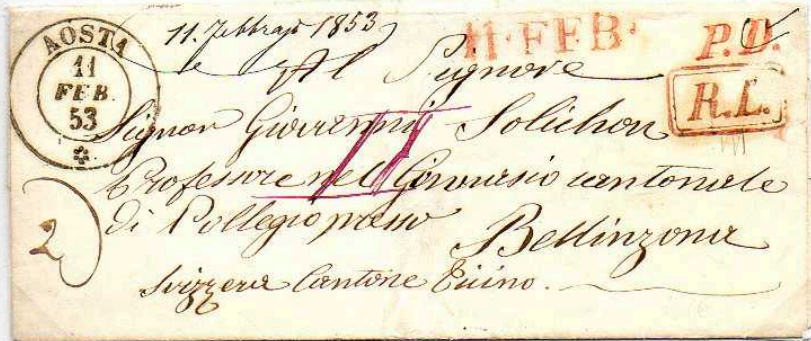 11. Febbrajo 1853
11·FEB·
P.D.
AOSTA
11
FEB.
53
R.L.
Al Signore
Signor Giovanni Solichon
Professore nel Ginnasio cantonale
di Pollegio presso
Bellinzona
2
Svizzera Cantone Ticino.